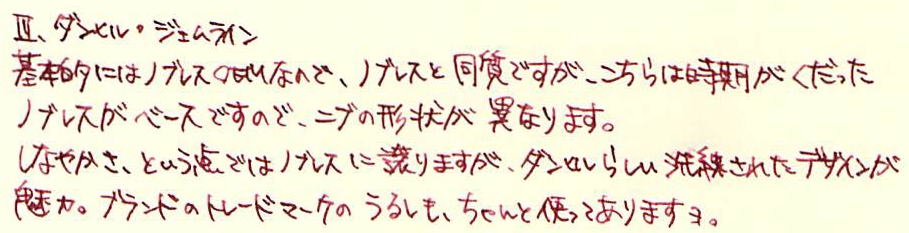 Ⅲ、ダンヒル・ジェムライン
基本的にはノブレスOEMなので、ノブレスと同質ですが、こちらは時期がくだった
ノブレスがベースですので、ニブの形状が異なります。
しなやかさ、という点ではノブレスに譲りますが、ダンヒルらしい洗練されたデザインが
魅力。ブランドのトレードマークのうるしも、ちゃんと使ってありますヨ。